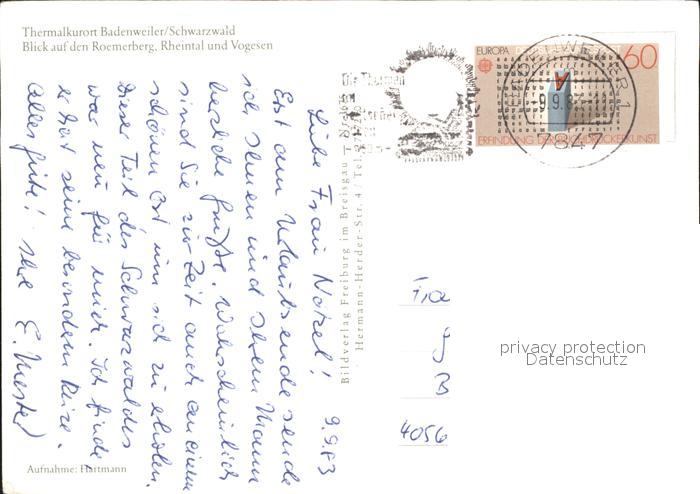 Thermalkurort Badenweiler/Schwarzwald
Blick auf den Roemerberg, Rheintal und Vogesen
EUROPA
60
ERFINDUNG DER BUCHDRUCKERKUNST
BADENWEILER 1
9.9.83
7847
Die Thermen
9.9.83
Liebe Frau Nötzel!
Erst am Urlaubsende sende
ich Ihnen und Ihrem Mann
herzliche Grüße. Wahrscheinlich
sind Sie zur Zeit auch an einem
schönen Ort um sich zu erholen.
Dieser Teil des Schwarzwaldes
war neu für mich. Ich finde,
er hat seine besonderen Reize.
Alles Gute! Ihre E.
Bildverlag Freiburg im Breisgau
Hermann-Herder-Str. 4 / Tel.
Fra
4056
privacy protection
Datenschutz
Aufnahme: Hartmann